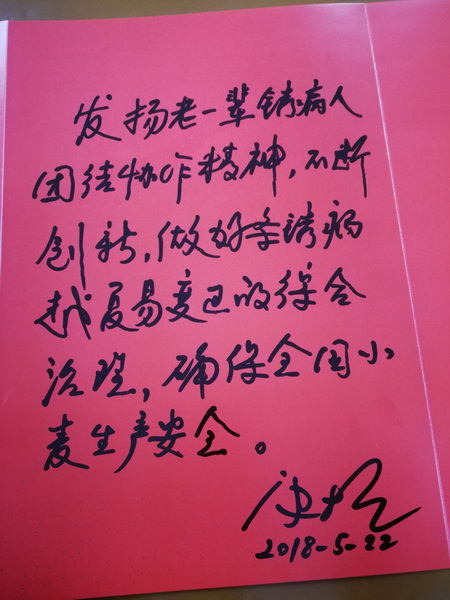 发扬老一辈锈病人
团结协作精神，不断
创新，做好条锈病
越夏易变区的综合
治理，确保全国小
麦生产安全。
康振
2018-5-22